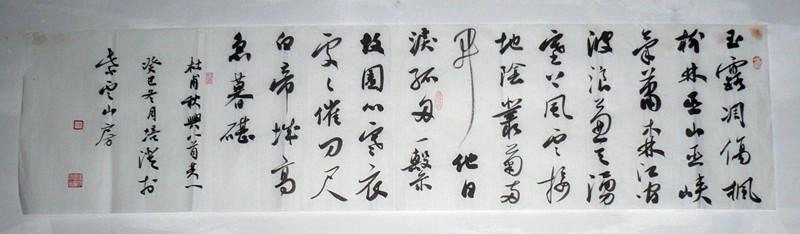 玉露凋傷楓
樹林巫山巫峽
氣蕭森江間
波浪兼天湧
塞上風雲接
地陰叢菊兩
開他日
淚孤舟一繫
故園心寒衣
處〻催刀尺
白帝城高
急暮碪
杜甫秋興八首其一
癸巳冬月培於
紫雲山房